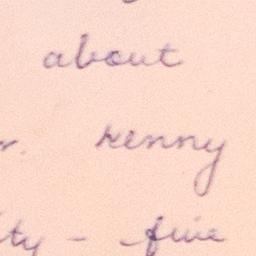 about
r. kenny
ty - five